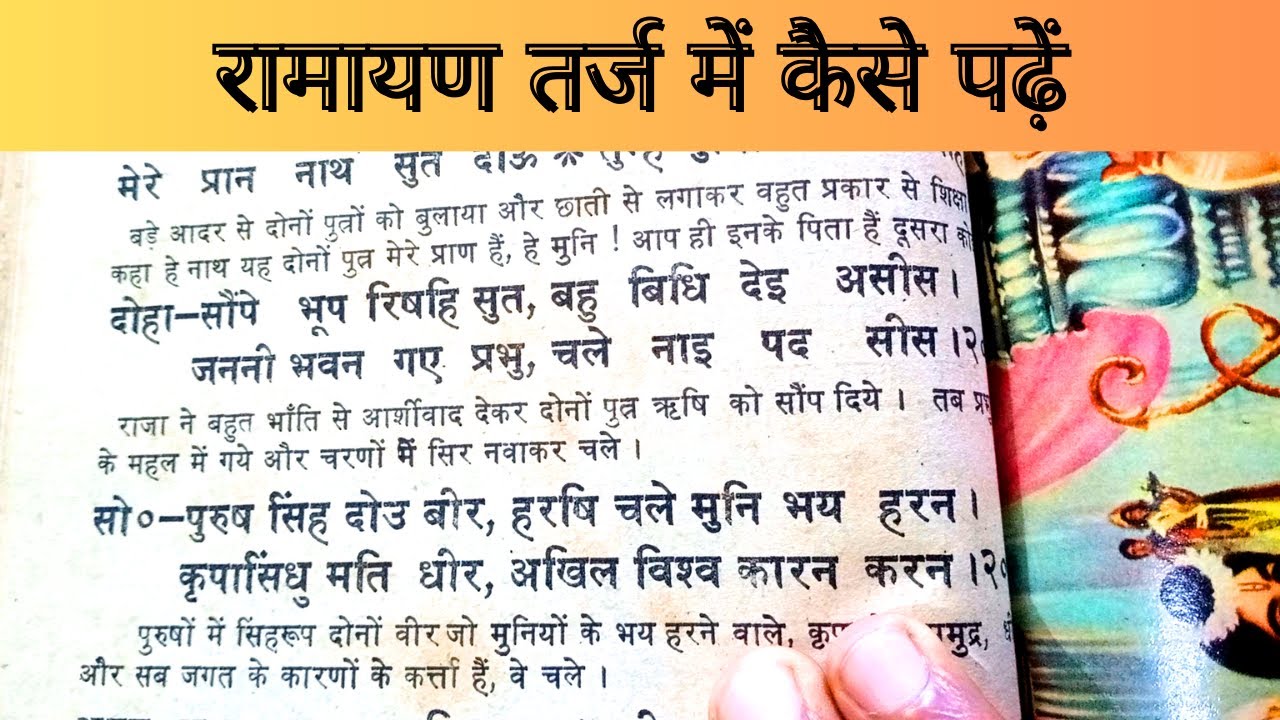 रामायण तर्ज में कैसे पढ़ें
मेरे प्रान नाथ सुत दोऊ
बड़े आदर से दोनों पुत्रों को बुलाया और छाती से लगाकर वहुत प्रकार से शिक्षा
कहा हे नाथ यह दोनों पुत्र मेरे प्राण हैं, हे मुनि ! आप ही इनके पिता हैं दूसरा
दोहा–सौंपे भूप रिषहि सुत, बहु बिधि देइ असीस ।
जननी भवन गए प्रभु, चले नाइ पद सीस ।
राजा ने बहुत भाँति से आर्शीवाद देकर दोनों पुत्र ऋषि को सौंप दिये । तब
के महल में गये और चरणों में सिर नवाकर चले ।
सो०–पुरुष सिंह दोउ बीर, हरषि चले मुनि भय हरन ।
कृपासिंधु मति धीर, अखिल विश्व कारन करन ।
पुरुषों में सिंहरूप दोनों वीर जो मुनियों के भय हरने वाले,
और सब जगत के कारणों के कर्त्ता हैं, वे चले ।